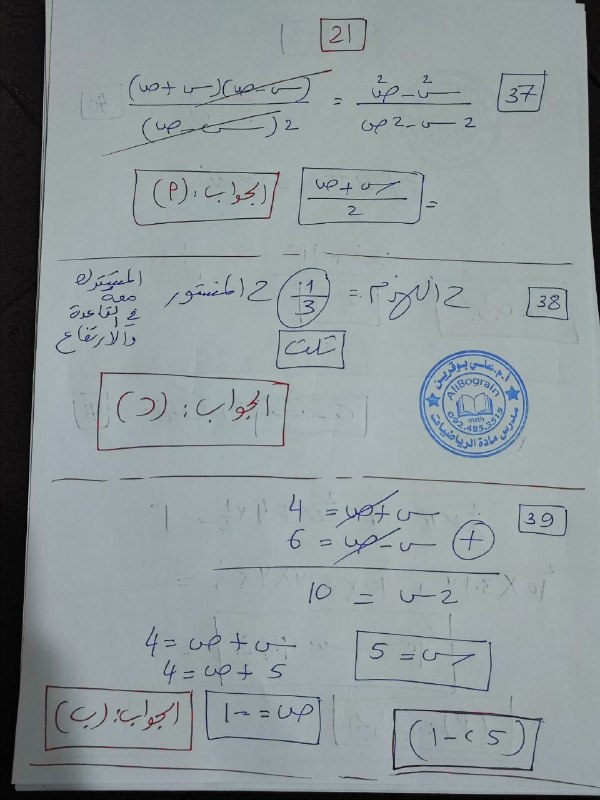 21
37 س² - ص² / 2س - 2ص = (س - ص)(س + ص) / 2(س - ص)
= س + ص / 2 الجواب: (P)
38 ح الهرم = 1/3 ح المنشور المشترك
معه
في القاعدة
والارتفاع
ثلث
الجواب: (د)
أ.م.علي بوقرين
AliBograin
math
092.485.3515
مدرس مادة الرياضيات
39 س + ص = 4
+ س - ص = 6
2س = 10
س = 5 س + ص = 4
5 + ص = 4
(5 ، -1) ص = -1 الجواب: (ب)